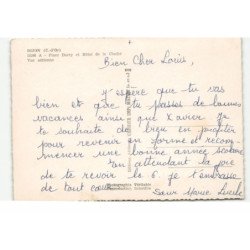 DIJON (C.-d'Or)
Place Darcy et Hôtel de la Cloche
Vue aérienne
Bien Cher Louis,
J'espère que tu vas
bien et que tu passes de bonnes
vacances ainsi que Xavier. Je
te souhaite de bien en profiter
pour revenir en forme et recom-
mencer une bonne année scolaire
En attendant la joie
de te revoir le 6. je t'embrasse
de tout coeur.
Sœur Marie Lucile
Photographie Véritable